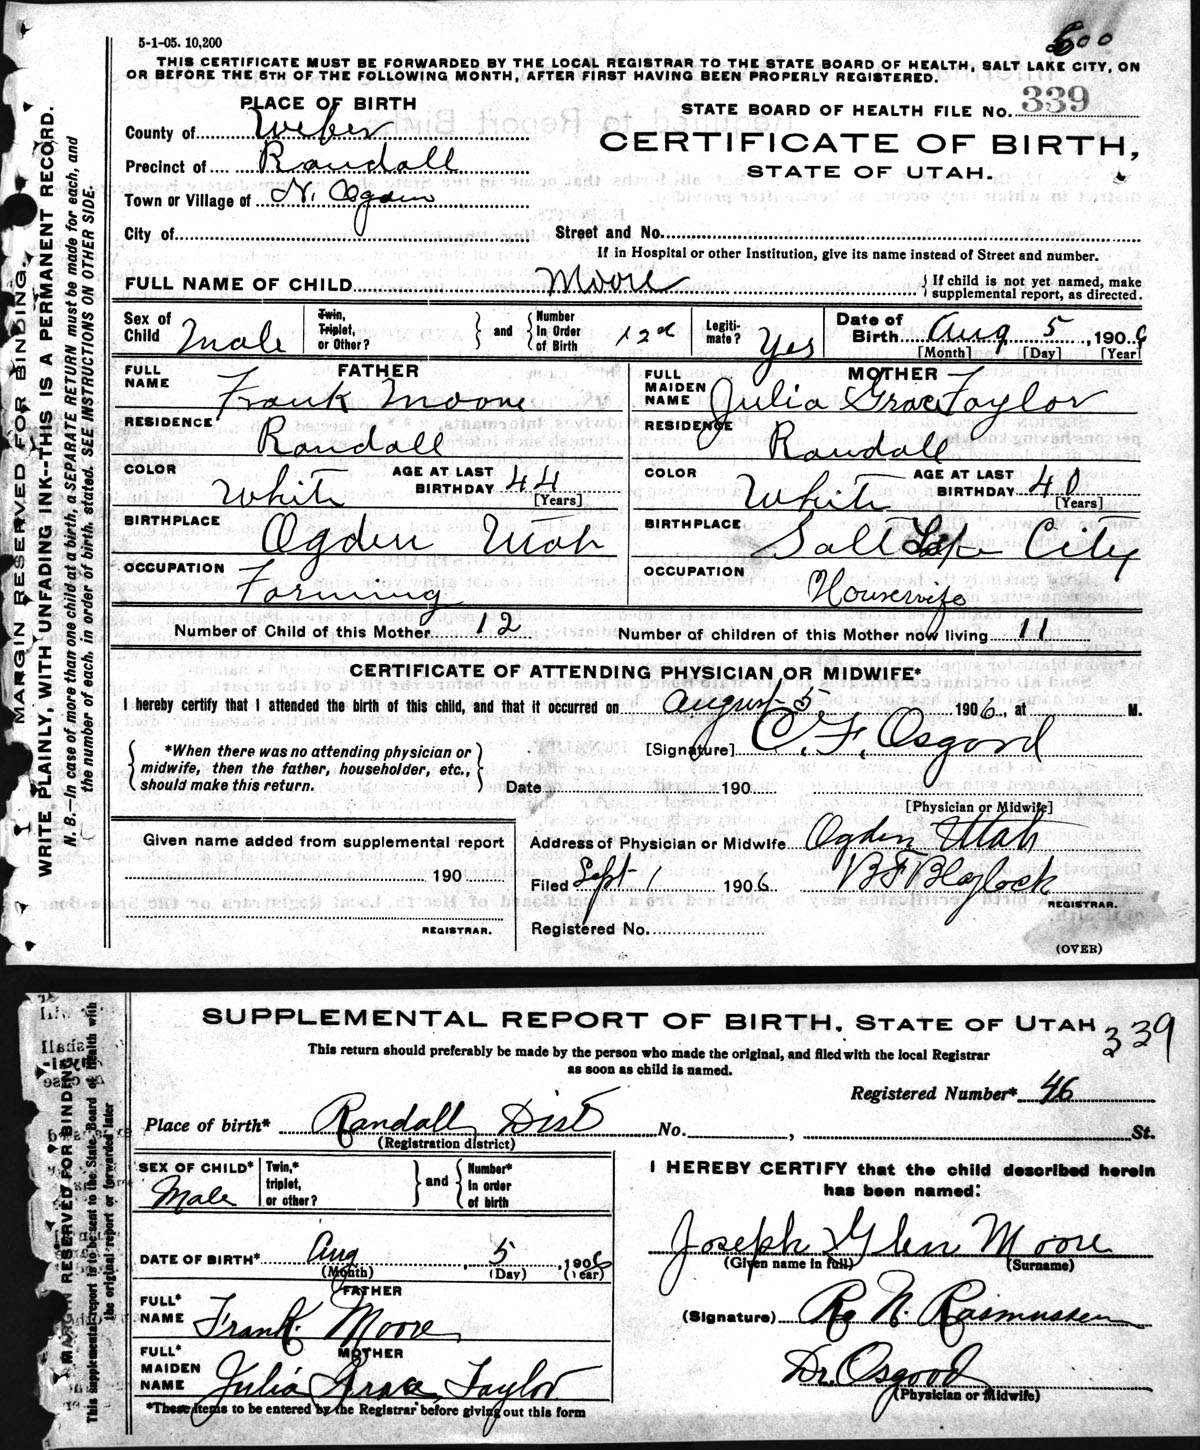 5-1-05. 10,200
600
THIS CERTIFICATE MUST BE FORWARDED BY THE LOCAL REGISTRAR TO THE STATE BOARD OF HEALTH, SALT LAKE CITY, ON
OR BEFORE THE 5TH OF THE FOLLOWING MONTH, AFTER FIRST HAVING BEEN PROPERLY REGISTERED.
MARGIN RESERVED FOR BINDING.
WRITE PLAINLY, WITH UNFADING INK--THIS IS A PERMANENT RECORD.
N. B.—In case of more than one child at a birth, a SEPARATE RETURN must be made for each, and
the number of each, in order of birth, stated. SEE INSTRUCTIONS ON OTHER SIDE.
PLACE OF BIRTH
County of Weber
Precinct of Randall
Town or Village of N. Ogden
City of
STATE BOARD OF HEALTH FILE No. 339
CERTIFICATE OF BIRTH,
STATE OF UTAH.
Street and No.
If in Hospital or other Institution, give its name instead of Street and number.
FULL NAME OF CHILD Moore
If child is not yet named, make
supplemental report, as directed.
Sex of Child Male
Twin, Triplet, or Other? and Number in Order of Birth 12th
Legitimate? Yes
Date of Birth Aug 5, 1906
[Month] [Day] [Year]
FATHER
FULL NAME Frank Moore
RESIDENCE Randall
COLOR White AGE AT LAST BIRTHDAY 44
[Years]
BIRTHPLACE Ogden Utah
OCCUPATION Farming
MOTHER
FULL MAIDEN NAME Julia Grace Taylor
RESIDENCE Randall
COLOR White AGE AT LAST BIRTHDAY 40
[Years]
BIRTHPLACE Salt Lake City
OCCUPATION Housewife
Number of Child of this Mother 12 Number of children of this Mother now living 11
CERTIFICATE OF ATTENDING PHYSICIAN OR MIDWIFE*
I hereby certify that I attended the birth of this child, and that it occurred on August 5 1906, at M.
*When there was no attending physician or
midwife, then the father, householder, etc.,
should make this return.
[Signature] C. F. Osgood
Date 190
[Physician or Midwife]
Given name added from supplemental report
190
REGISTRAR.
Address of Physician or Midwife Ogden Utah
Filed Sept 1 1906 B F Blaylock
REGISTRAR.
Registered No.
(OVER)
MARGIN RESERVED FOR BINDING
This supplemental report is to be sent to the State Board of Health with
the original report or forwarded later
SUPPLEMENTAL REPORT OF BIRTH, STATE OF UTAH
339
This return should preferably be made by the person who made the original, and filed with the local Registrar
as soon as child is named.
Registered Number* 46
Place of birth* Randall Dist No. , St.
(Registration district)
SEX OF CHILD* Male
Twin,* triplet, or other? and Number* in order of birth
DATE OF BIRTH* Aug 5, 1906
(Month) (Day) (Year)
FATHER
FULL* NAME Frank Moore
MOTHER
FULL* MAIDEN NAME Julia Grace Taylor
*These items to be entered by the Registrar before giving out this form
I HEREBY CERTIFY that the child described herein
has been named:
Joseph Glen Moore
(Given name in full) (Surname)
(Signature) N. Rasmussen
Dr. Osgood
(Physician or Midwife)